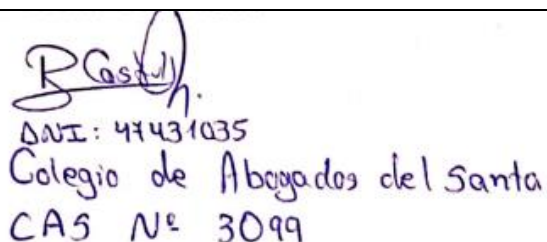 DNI: 47431035
Colegio de Abogados del Santa
CAS Nº 3099